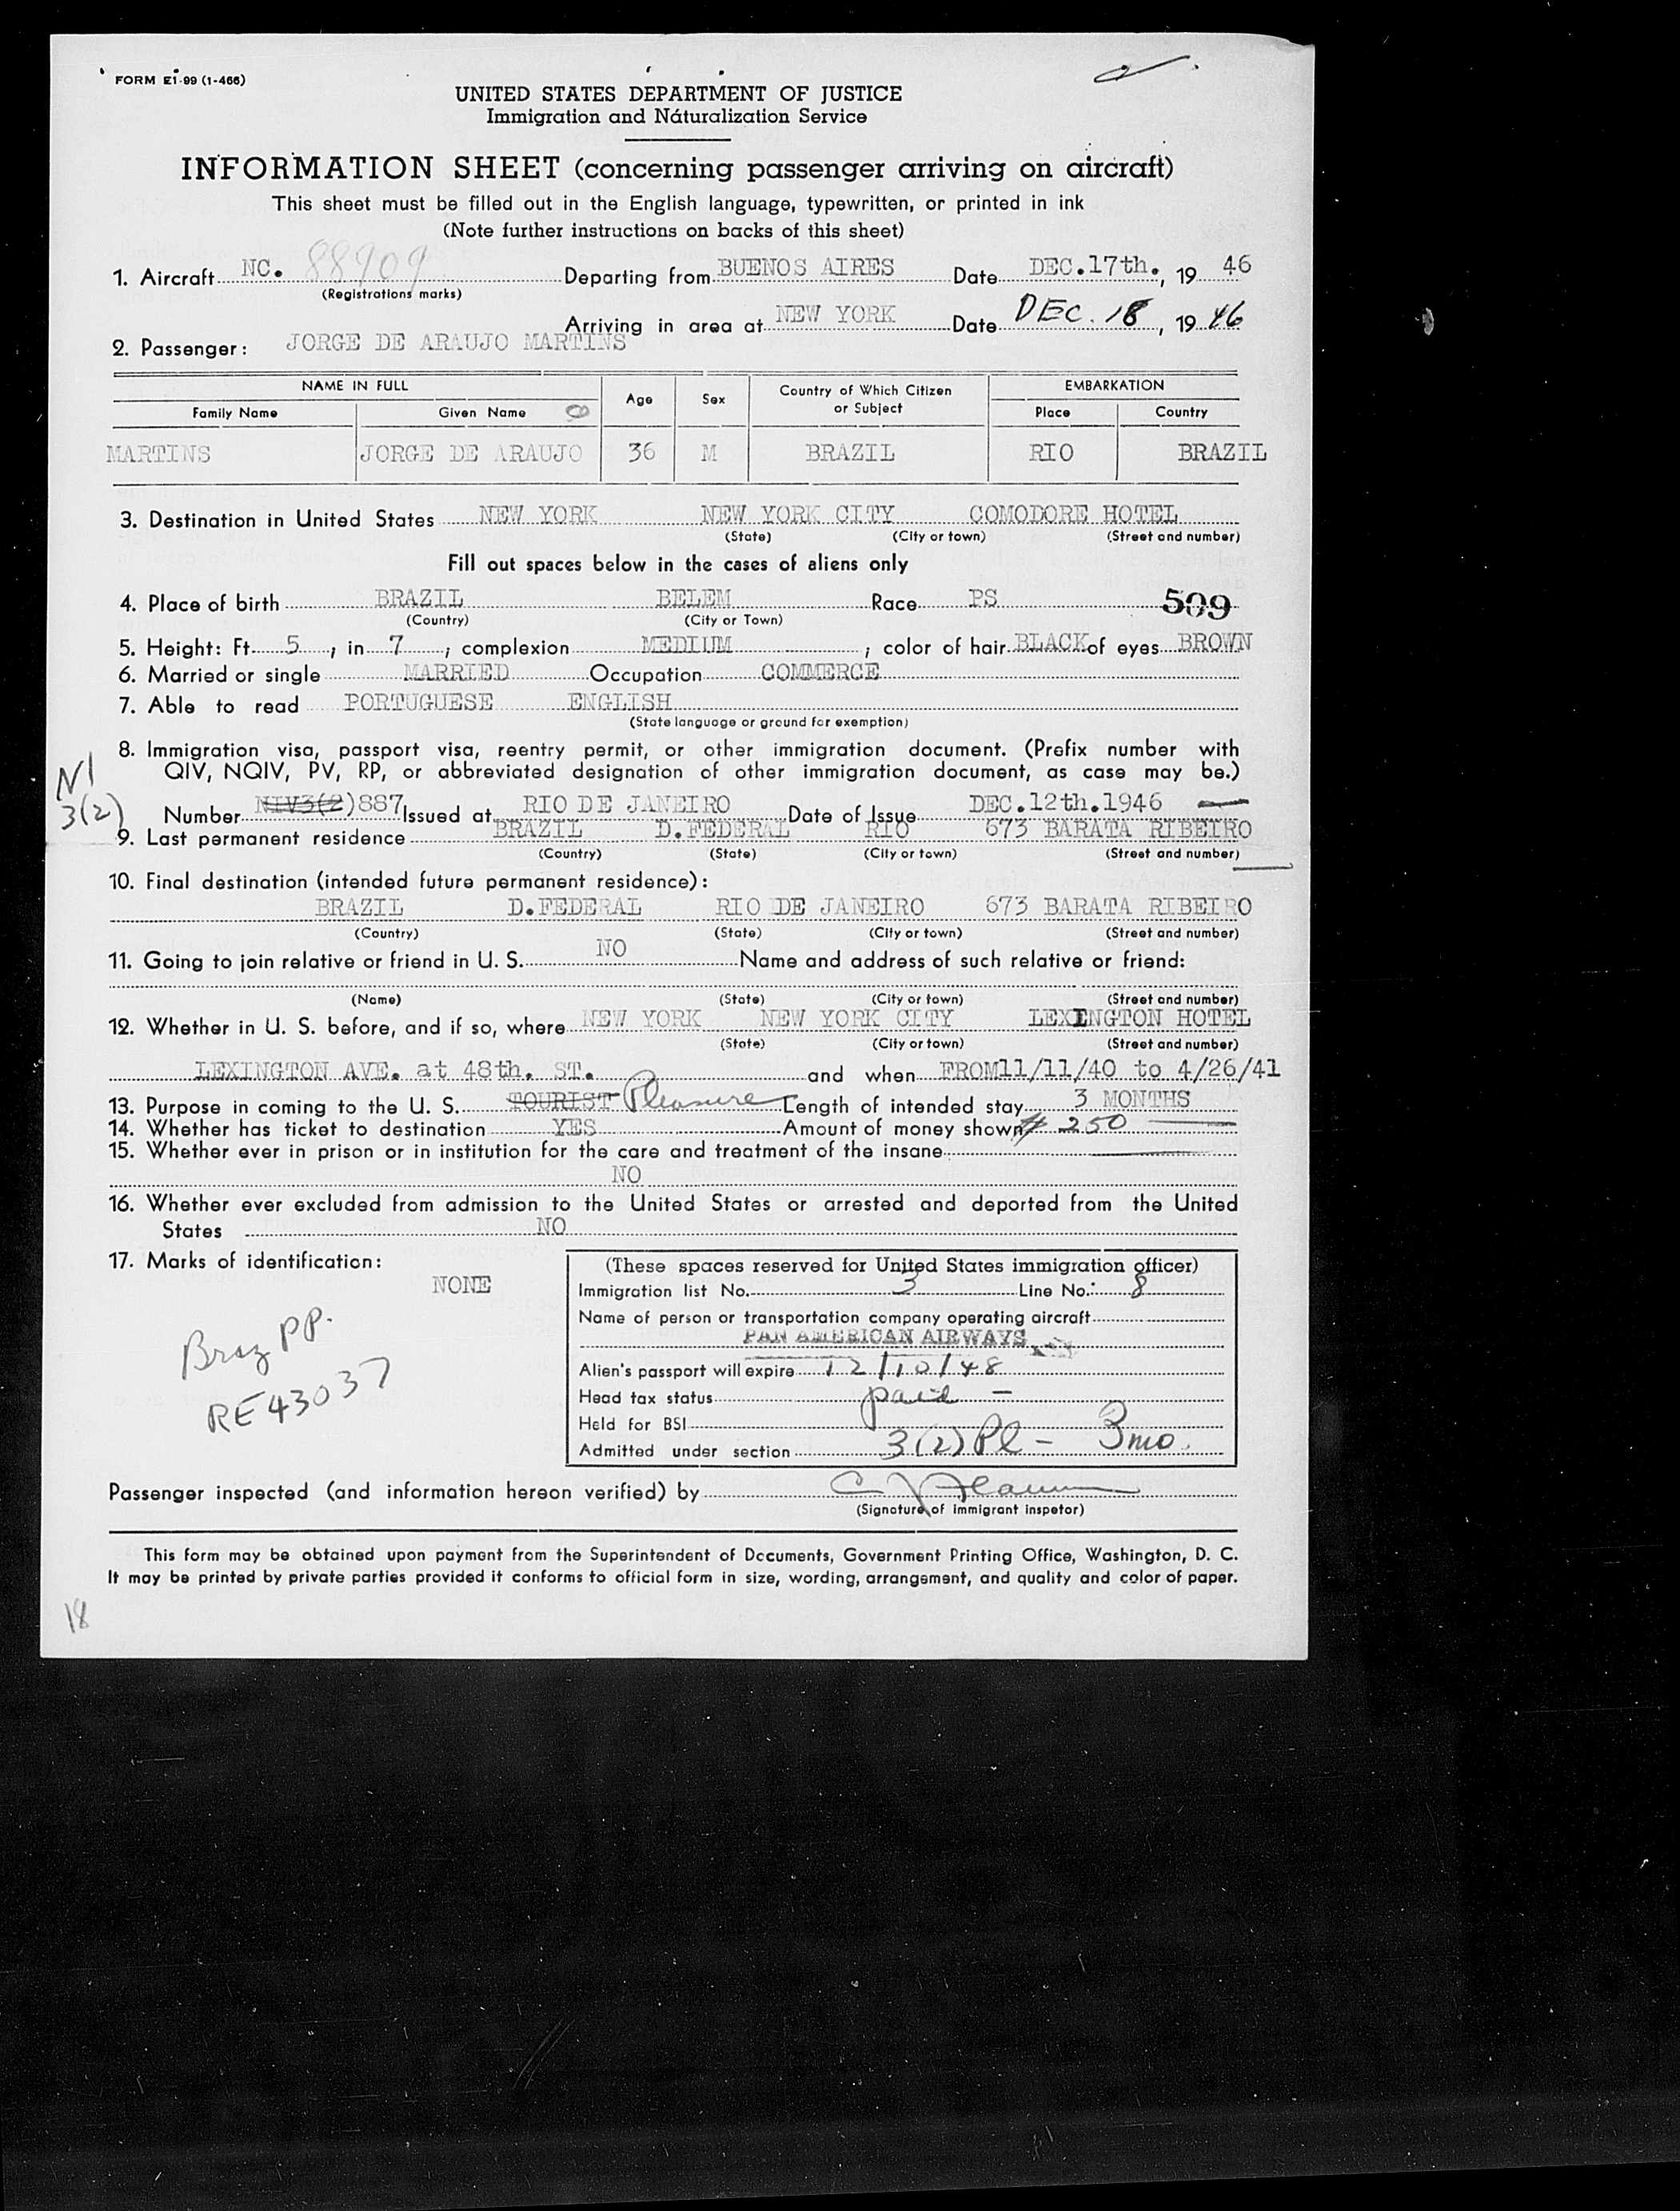 FORM EI-99 (1-466)
UNITED STATES DEPARTMENT OF JUSTICE
Immigration and Naturalization Service
INFORMATION SHEET (concerning passenger arriving on aircraft)
This sheet must be filled out in the English language, typewritten, or printed in ink
(Note further instructions on backs of this sheet)
1. Aircraft NC. 88909 Departing from BUENOS AIRES Date DEC.17th., 19 46
(Registrations marks)
Arriving in area at NEW YORK Date DEC. 18, 19 46
2. Passenger: JORGE DE ARAUJO MARTINS
NAME IN FULL Age Sex Country of Which Citizen or Subject EMBARKATION
Family Name Given Name Place Country
MARTINS JORGE DE ARAUJO 36 M BRAZIL RIO BRAZIL
3. Destination in United States NEW YORK NEW YORK CITY COMODORE HOTEL
(State) (City or town) (Street and number)
Fill out spaces below in the cases of aliens only
4. Place of birth BRAZIL BELEM Race PS 509
(Country) (City or Town)
5. Height: Ft. 5, in 7; complexion MEDIUM; color of hair BLACK of eyes BROWN
6. Married or single MARRIED Occupation COMMERCE
7. Able to read PORTUGUESE ENGLISH
(State language or ground for exemption)
8. Immigration visa, passport visa, reentry permit, or other immigration document. (Prefix number with
QIV, NQIV, PV, RP, or abbreviated designation of other immigration document, as case may be.)
NI
3(2)
Number NIV3(2)887 Issued at RIO DE JANEIRO Date of Issue DEC.12th.1946
9. Last permanent residence BRAZIL D.FEDERAL RIO 673 BARATA RIBEIRO
(Country) (State) (City or town) (Street and number)
10. Final destination (intended future permanent residence):
BRAZIL D.FEDERAL RIO DE JANEIRO 673 BARATA RIBEIRO
(Country) (State) (City or town) (Street and number)
11. Going to join relative or friend in U. S. NO Name and address of such relative or friend:
(Name) (State) (City or town) (Street and number)
12. Whether in U. S. before, and if so, where NEW YORK NEW YORK CITY LEXINGTON HOTEL
(State) (City or town) (Street and number)
LEXINGTON AVE. at 48th. ST. and when FROM11/11/40 to 4/26/41
13. Purpose in coming to the U. S. TOURIST Pleasure Length of intended stay 3 MONTHS
14. Whether has ticket to destination YES Amount of money shown $ 250
15. Whether ever in prison or in institution for the care and treatment of the insane
NO
16. Whether ever excluded from admission to the United States or arrested and deported from the United
States NO
17. Marks of identification:
NONE
Braz PP.
RE43037
(These spaces reserved for United States immigration officer)
Immigration list No. 3 Line No. 8
Name of person or transportation company operating aircraft
PAN AMERICAN AIRWAYS
Alien's passport will expire 12/10/48
Head tax status paid -
Held for BSI
Admitted under section 3(2) Pl - 3mo.
Passenger inspected (and information hereon verified) by
(Signature of immigrant inspetor)
This form may be obtained upon payment from the Superintendent of Documents, Government Printing Office, Washington, D. C.
It may be printed by private parties provided it conforms to official form in size, wording, arrangement, and quality and color of paper.
18